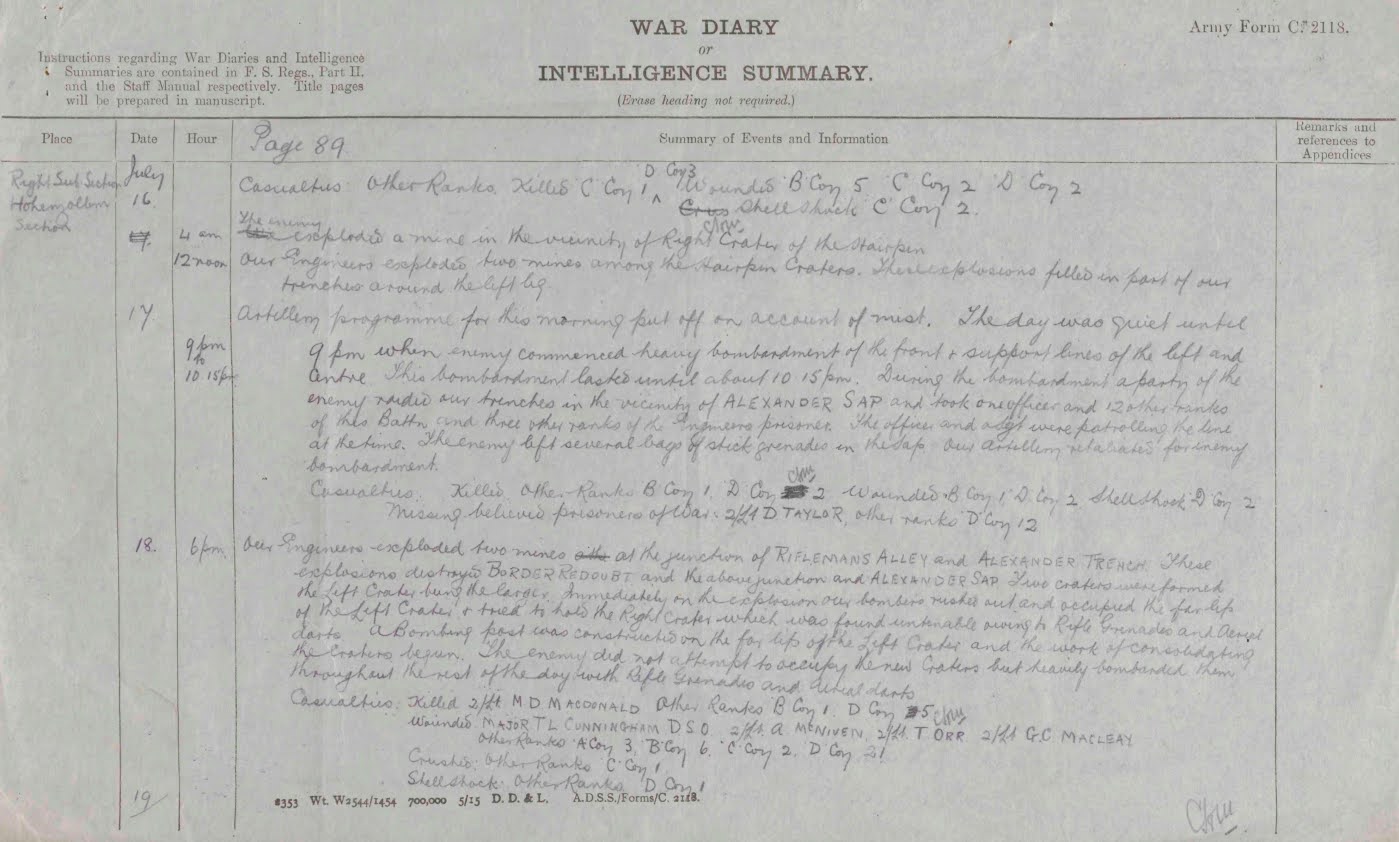 WAR DIARY
or
INTELLIGENCE SUMMARY.
(Erase heading not required.)
Army Form C. 2118.
Instructions regarding War Diaries and Intelligence
Summaries are contained in F. S. Regs., Part II.
and the Staff Manual respectively. Title pages
will be prepared in manuscript.
Place Date Hour Summary of Events and Information Remarks and references to Appendices
Page 89
Right Sub Section
Hohenzollern
Section
July
16
Casualties: Other Ranks. Killed 'C' Coy 1 D Coy 3 Wounded 'B' Coy 5 'C' Coy 2 'D' Coy 2
Shell Shock 'C' Coy 2.
4 am The enemy exploded a mine in the vicinity of Right Crater of the Hairpin
12 noon Our Engineers exploded two mines among the Hairpin Craters. These explosions filled in part of our
trenches around the left leg.
17 Artillery programme for this morning put off on account of mist. The day was quiet until
9 pm to 10.15 pm
9 pm when enemy commenced heavy bombardment of the front & support lines of the left and
centre. This bombardment lasted until about 10 15 pm. During the bombardment a party of the
enemy raided our trenches in the vicinity of ALEXANDER SAP and took one officer and 12 other ranks
of this Battn and three other ranks of the Engineers prisoner. The officer and sergt were patrolling the line
at the time. The enemy left several bags of stick grenades in the Sap. Our artillery retaliated for enemy
bombardment.
Casualties. Killed. Other Ranks B Coy 1. 'D' Coy 2 Wounded 'B' Coy 1 'D' Coy 2 Shell Shock 'D' Coy 2
Missing believed prisoners of War: 2/Lt D TAYLOR, other ranks 'D' Coy 12
18. 6 pm Our Engineers exploded two mines at the junction of RIFLEMANS ALLEY and ALEXANDER TRENCH. These
explosions destroyed BORDER REDOUBT and the above junction and ALEXANDER SAP. Two craters were formed
the Left Crater being the larger. Immediately on the explosion our bombers rushed out and occupied the far lip
of the Left Crater & tried to hold the Right Crater which was found untenable owing to Rifle Grenades and Aerial
darts. A Bombing post was constructed on the far lip of the Left Crater and the work of consolidating
the Craters begun. The enemy did not attempt to occupy the new Craters but heavily bombarded them
throughout the rest of the day with Rifle Grenades and aerial darts
Casualties: Killed 2/Lt M D MACDONALD Other Ranks B Coy 1. D Coy 5
Wounded MAJOR T L CUNNINGHAM D S O. 2/Lt. A McNIVEN, 2/Lt. T ORR 2/Lt G.C. MACLEAY
Other Ranks 'A' Coy 3, 'B' Coy 6. 'C' Coy 2. 'D' Coy 21
Crushed: Other Ranks 'C' Coy 1
Shell Shock: Other Ranks 'D' Coy 1
19
2353 Wt. W2544/1454 700,000 5/15 D. D. & L. A.D.S.S./Forms/C. 2118.